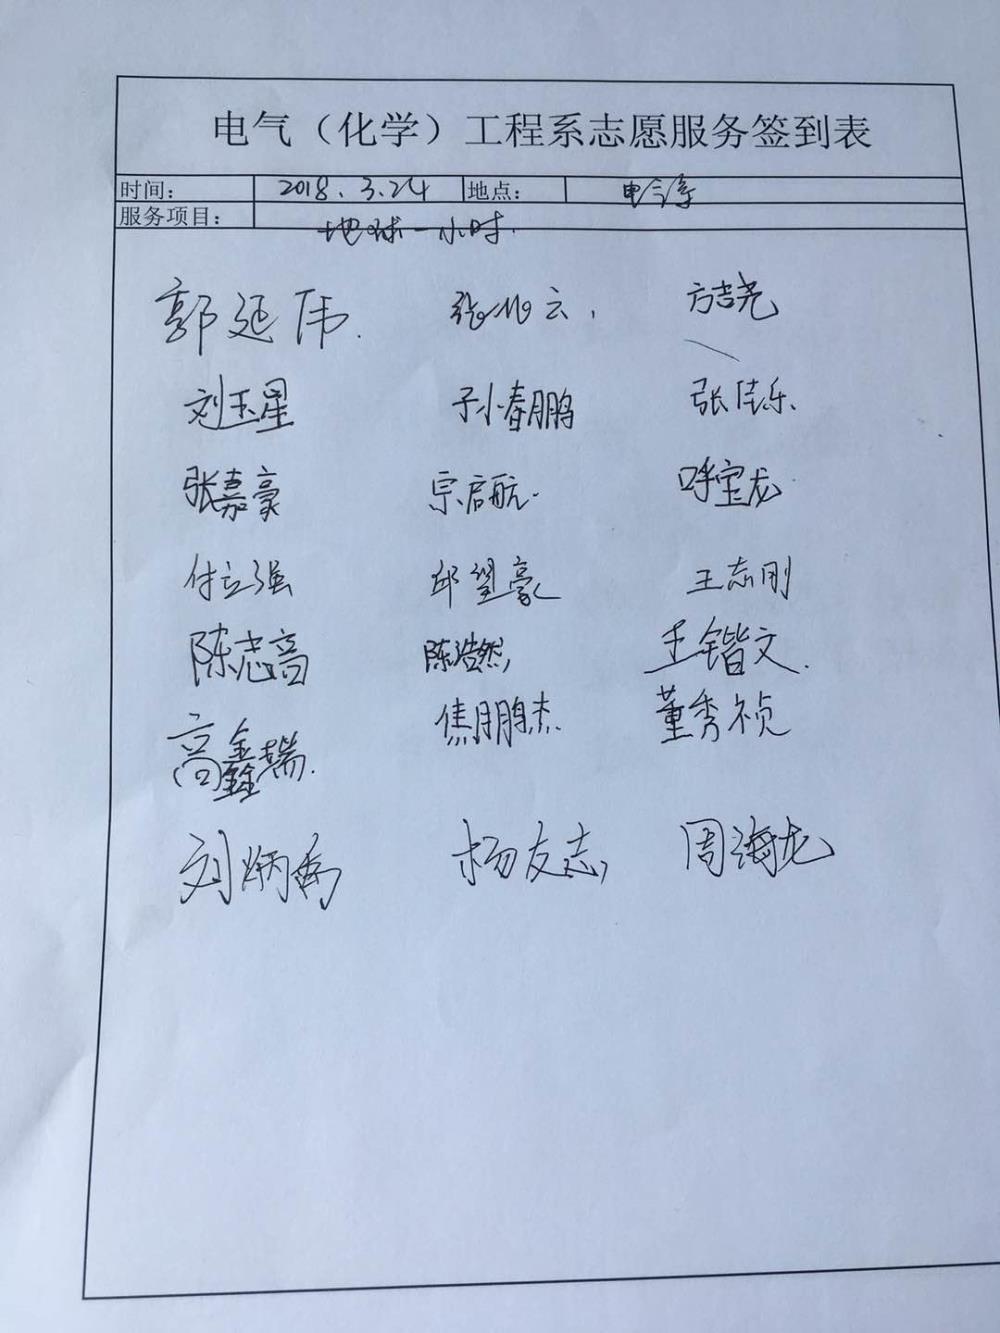 电气（化学）工程系志愿服务签到表
时间： 2018.3.24 地点： 电气系
服务项目： 地球一小时.
郭延伟. 云, 方喆
刘玉星 孙春鹏 张佳乐.
张嘉豪 宗启航. 呼宝龙
付立强 邱望豪 王志刚
陈志高 陈浩然, 王锴文.
高鑫瑞. 焦鹏杰. 董秀祯
刘炳禹 杨友志, 周海龙